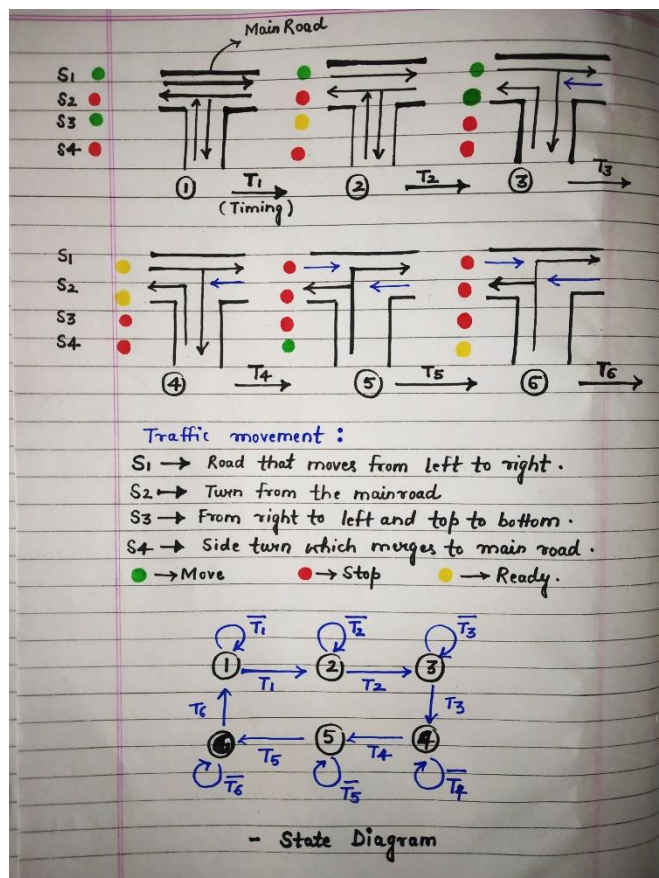 Main Road
S1
S2
S3
S4
① T1 ② T2 ③ T3
(Timing)
S1
S2
S3
S4
④ T4 ⑤ T5 ⑥ T6
Traffic movement :
S1 → Road that moves from left to right.
S2 → Turn from the mainroad
S3 → From right to left and top to bottom.
S4 → Side turn which merges to main road.
→ Move → Stop → Ready.
T̅1 T̅2 T̅3
① T1 ② T2 ③
T6 T3
6 T5 ⑤ T4 4
T̅6 T̅5 T̅4
- State Diagram